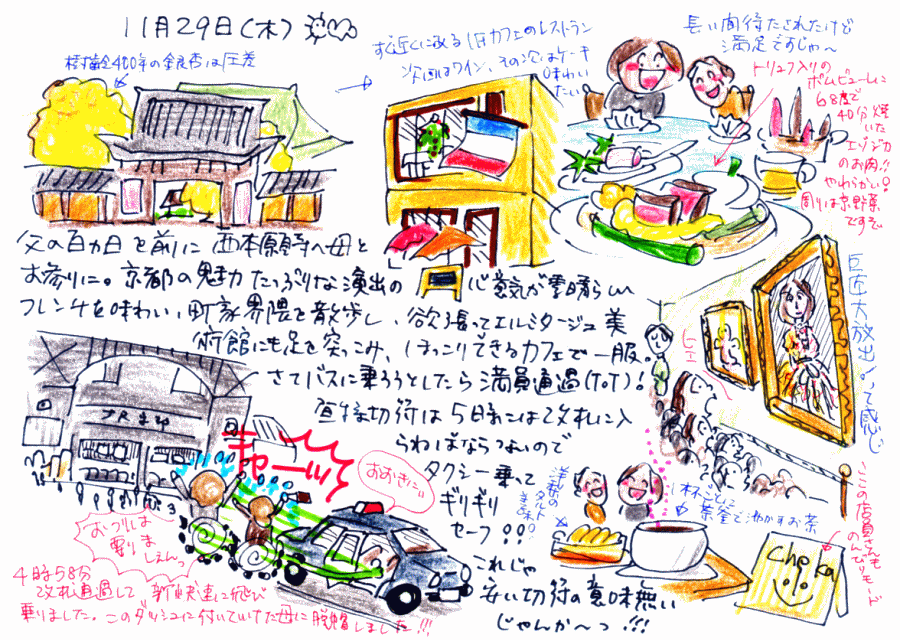 11月29日(木)
樹齢400年の余良否は圧差
すぐ近くに改る旧カフェのレストラン
次回はワイン、その次はケーキ
味わい
たい!
長い間待たされたけど
満足ですじゃ〜
トリュフ入りの
ポムピューレに
68度で
40分焼
いた
エゾジカ
のお肉!!
やわらかい!
周りは京野菜
ですぞ
父の百カ日を前に西本願寺へ母と
お参りに。京都の魅力たっぷりな演出の心意気が素晴らしい
フレンチを味わい、町家界隈を散歩し、欲張ってエルミタージュ美
術館にも足を突っこみ、ほっこりできるカフェで一服。
さてバスに乗ろうとしたら満員通過(ToT)!
昼得切符は5時までには改札に入
らねばならないので
タクシー乗って
ギリギリ
セーフ!!!
これじゃ
安い切符の意味無い
じゃんか〜っ!!!
巨匠大放出!って感じ
JR京都
キャーッッ
おおきに!!
おつりは
要りま
しぇんっ
4時58分
改札通過して、新快速に飛び
乗りました。このダッシュに付いていけた母に脱帽しました!!!
洋梨の
タルト
美味
1杯ごとに
茶釜で沸かすお茶
ここの店員さんも
のんびりモード
cheka